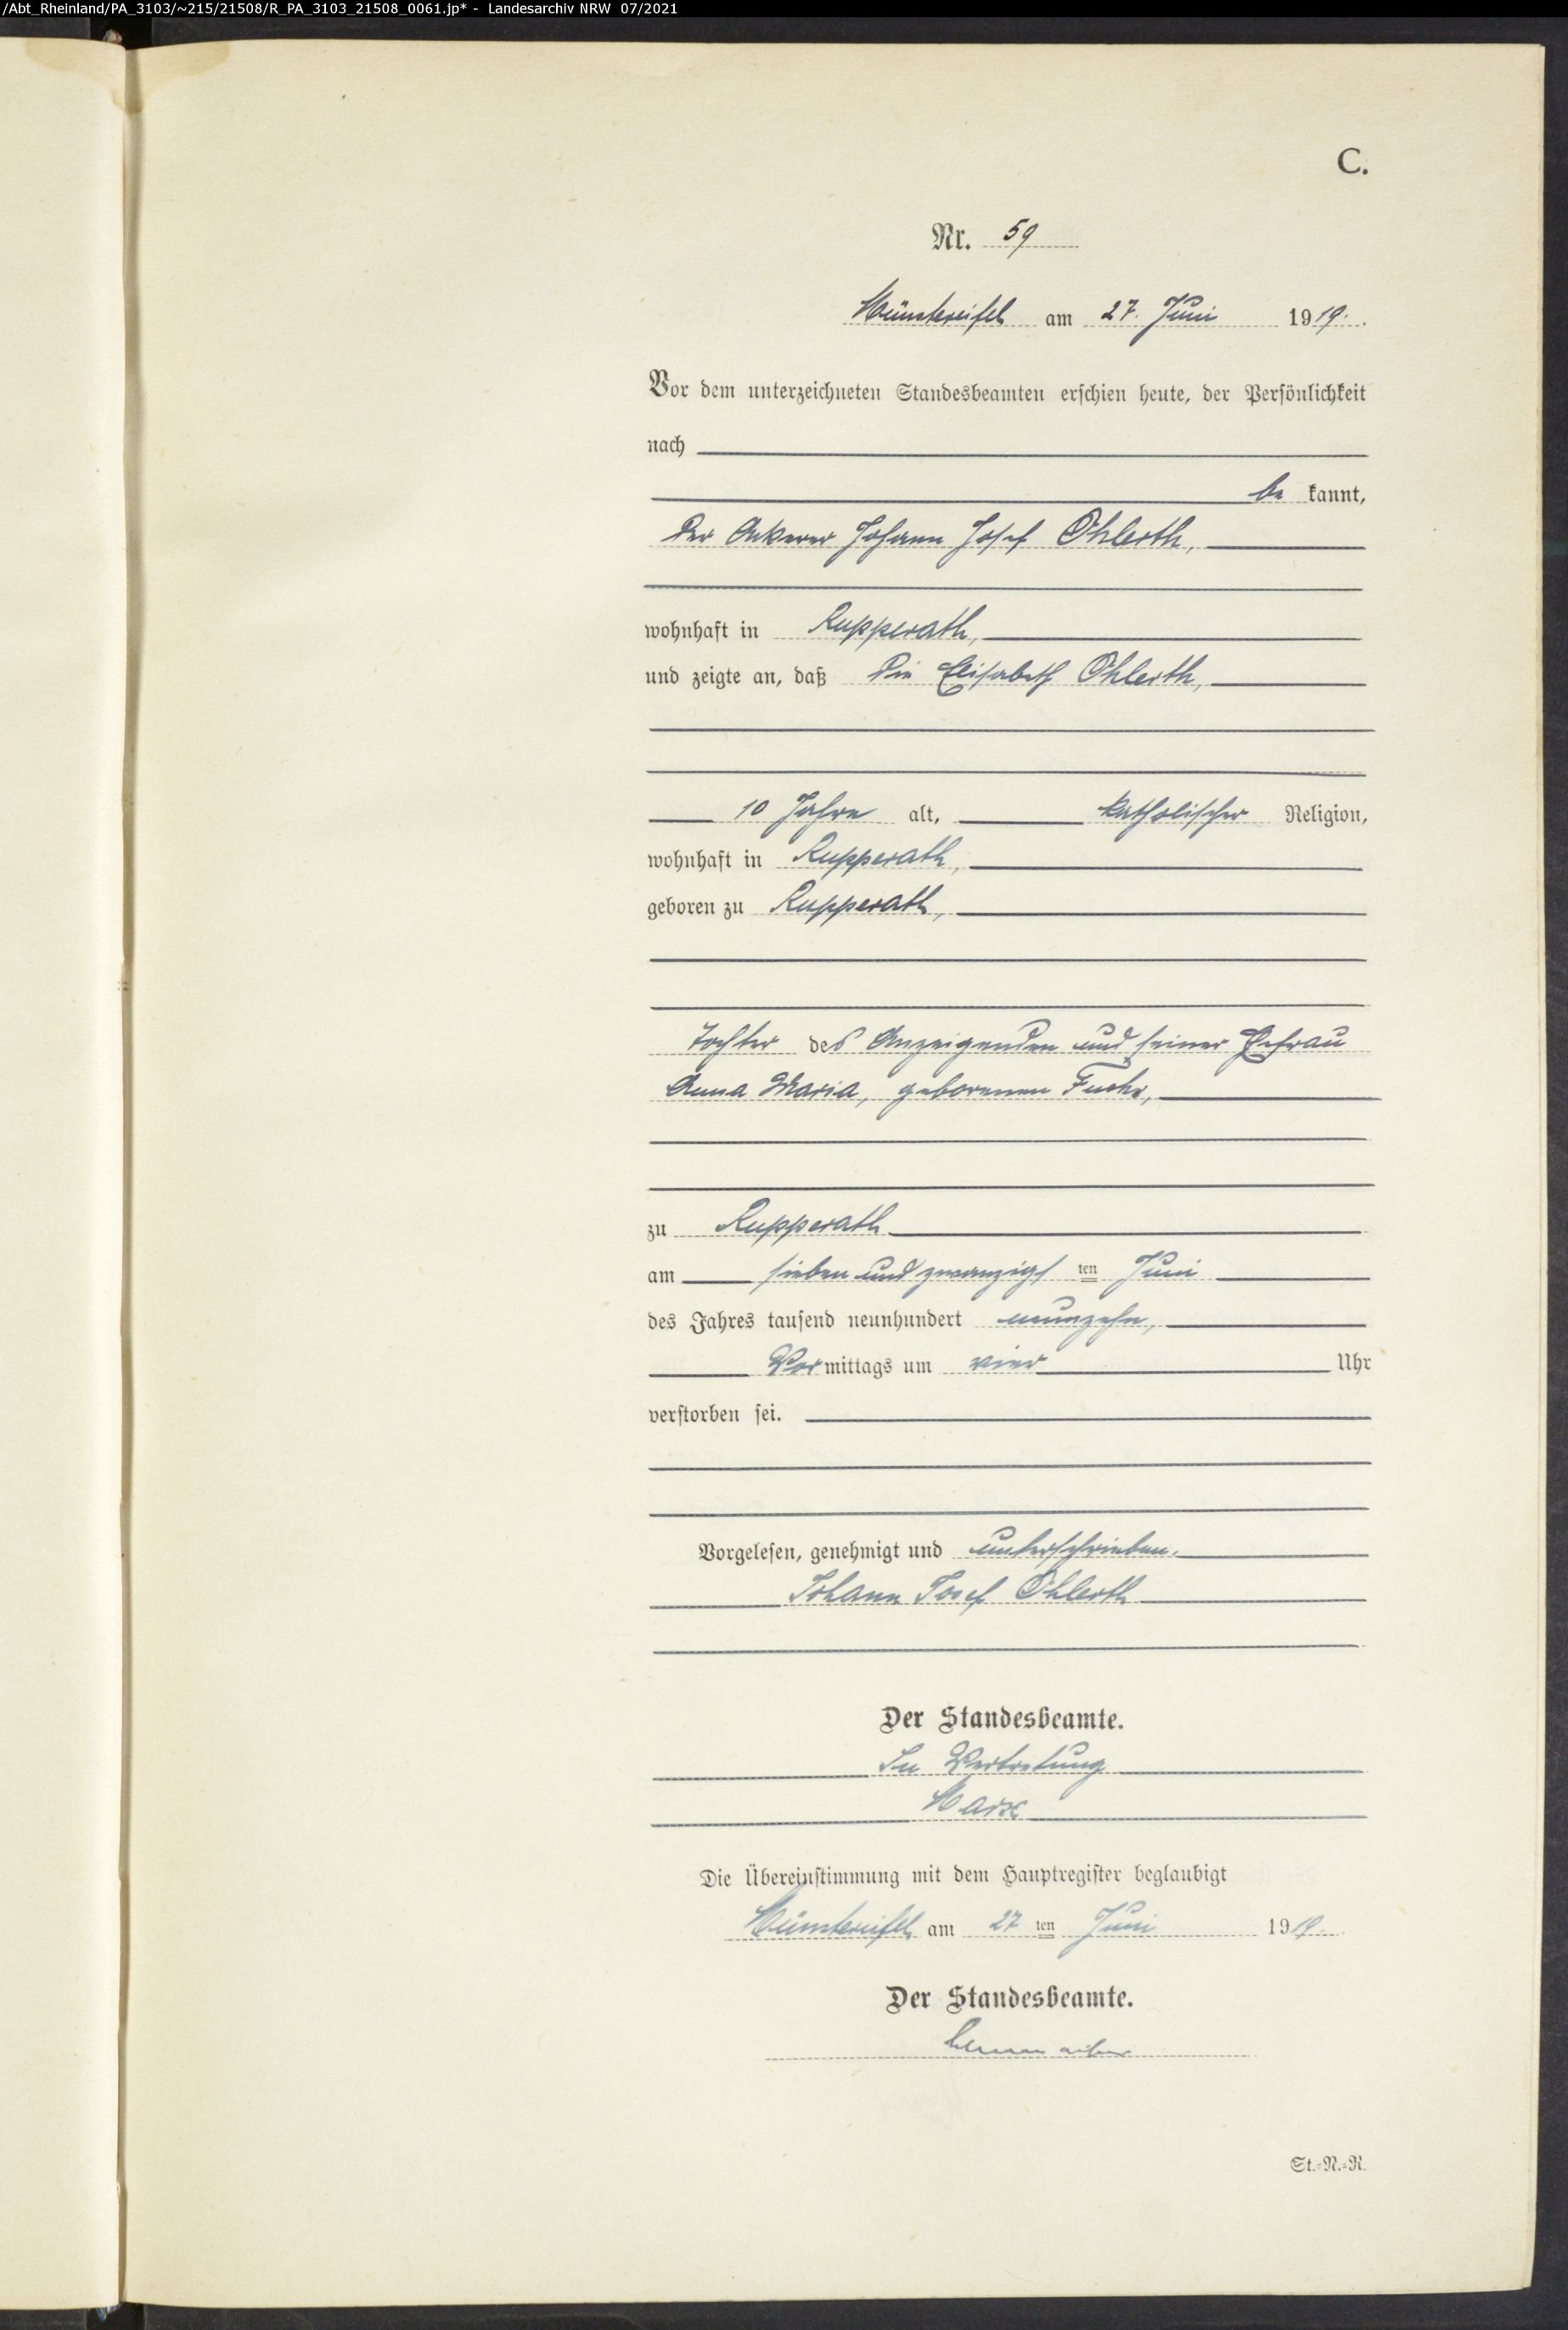 /Abt_Rheinland/PA_3103/~215/21508/R_PA_3103_21508_0061.jp* - Landesarchiv NRW 07/2021
C.
Nr. 59
Münstereifel am 27. Juni 1919.
Vor dem unterzeichneten Standesbeamten erschien heute, der Persönlichkeit
nach
be kannt,
der Ackerer Johann Josef Ohlerth,
wohnhaft in Rupperath,
und zeigte an, daß die Elisabeth Ohlerth,
10 Jahre alt, katholischer Religion,
wohnhaft in Rupperath,
geboren zu Rupperath,
Tochter des Anzeigenden und seiner Ehefrau
Anna Maria, geborenen Fuchs,
zu Rupperath
am sieben und zwanzigs ten Juni
des Jahres tausend neunhundert neunzehn,
Vor mittags um vier Uhr
verstorben sei.
Vorgelesen, genehmigt und unterschrieben.
Johann Josef Ohlerth
Der Standesbeamte.
In Vertretung
Marx
Die Übereinstimmung mit dem Hauptregister beglaubigt
Münstereifel am 27 ten Juni 1919.
Der Standesbeamte.
St.=N.=R.